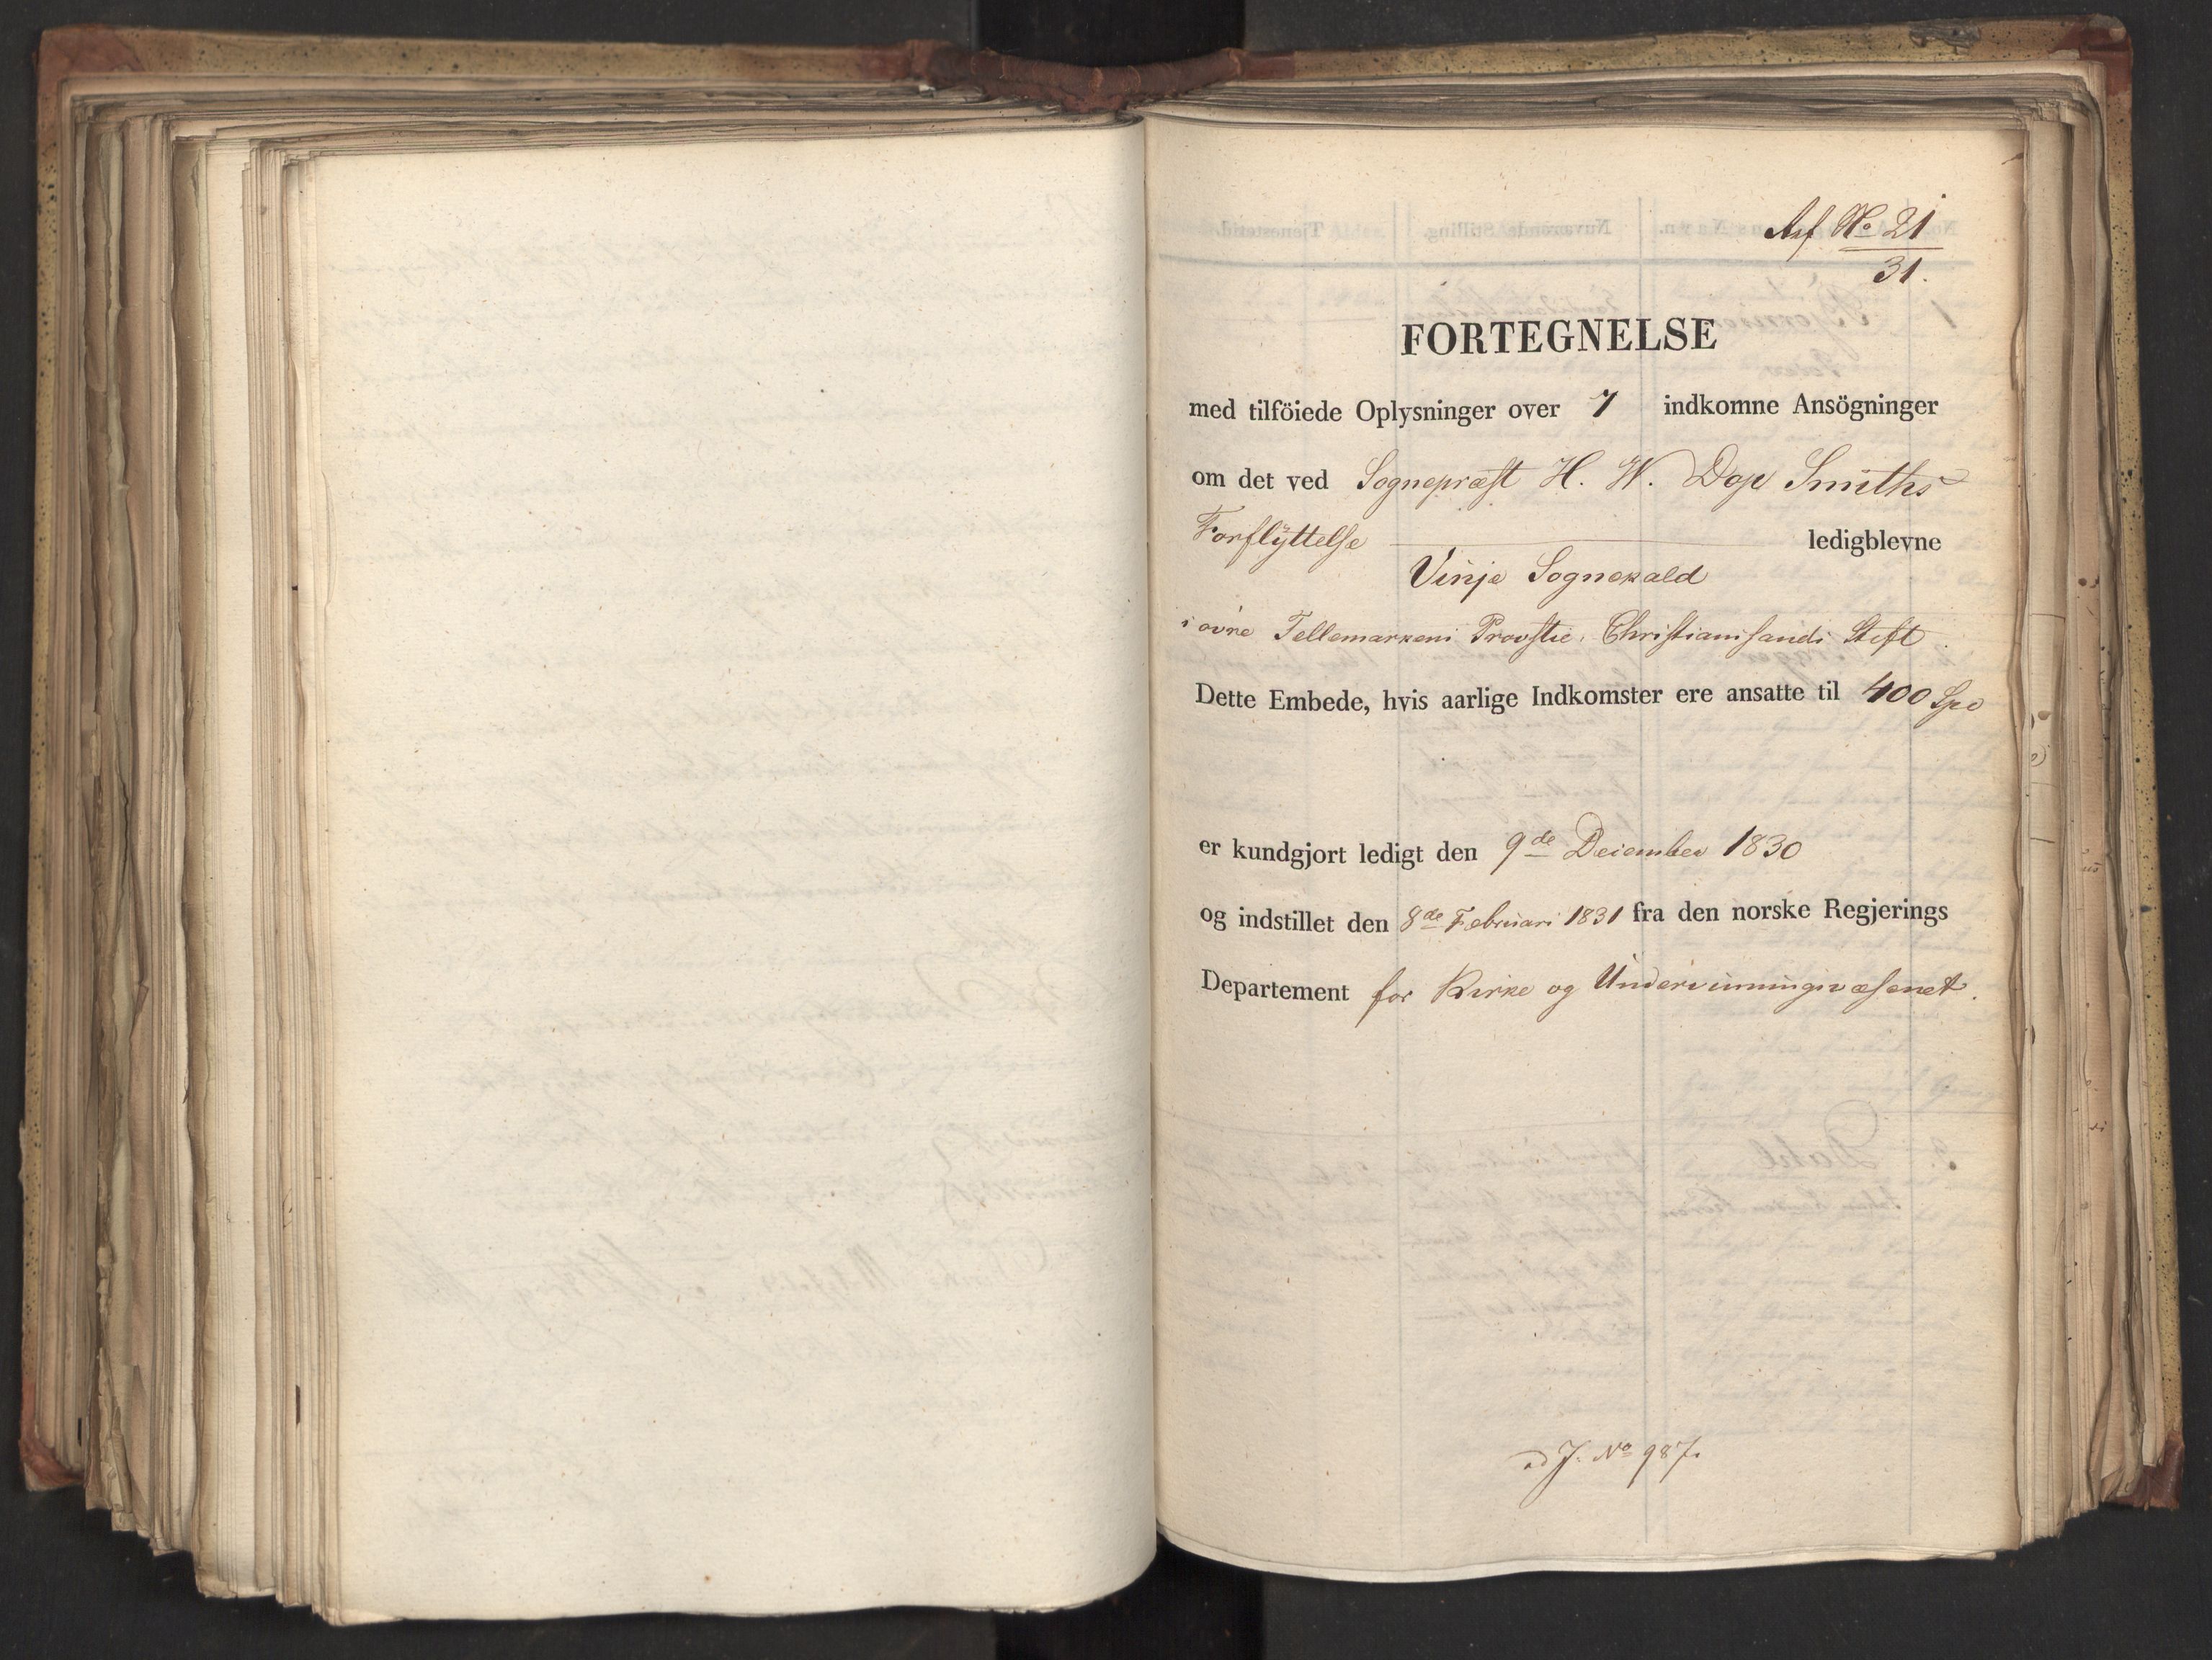 Ref No 21
31.
FORTEGNELSE
med tilföiede Oplysninger over 7 indkomne Ansögninger
om det ved Sognepræst H. W. Dop Smiths
Forflyttelse ledigblevne
Vinje Sognekald
i øvre Tellemarkens Provstie, Christiansands Stift.
Dette Embede, hvis aarlige Indkomster ere ansatte til 400 Spd
er kundgjort ledigt den 9de December 1830
og indstillet den 8de Februari 1831 fra den norske Regjerings
Departement for Kirke og Underviisningsvæsenet.
ad J. No 987.